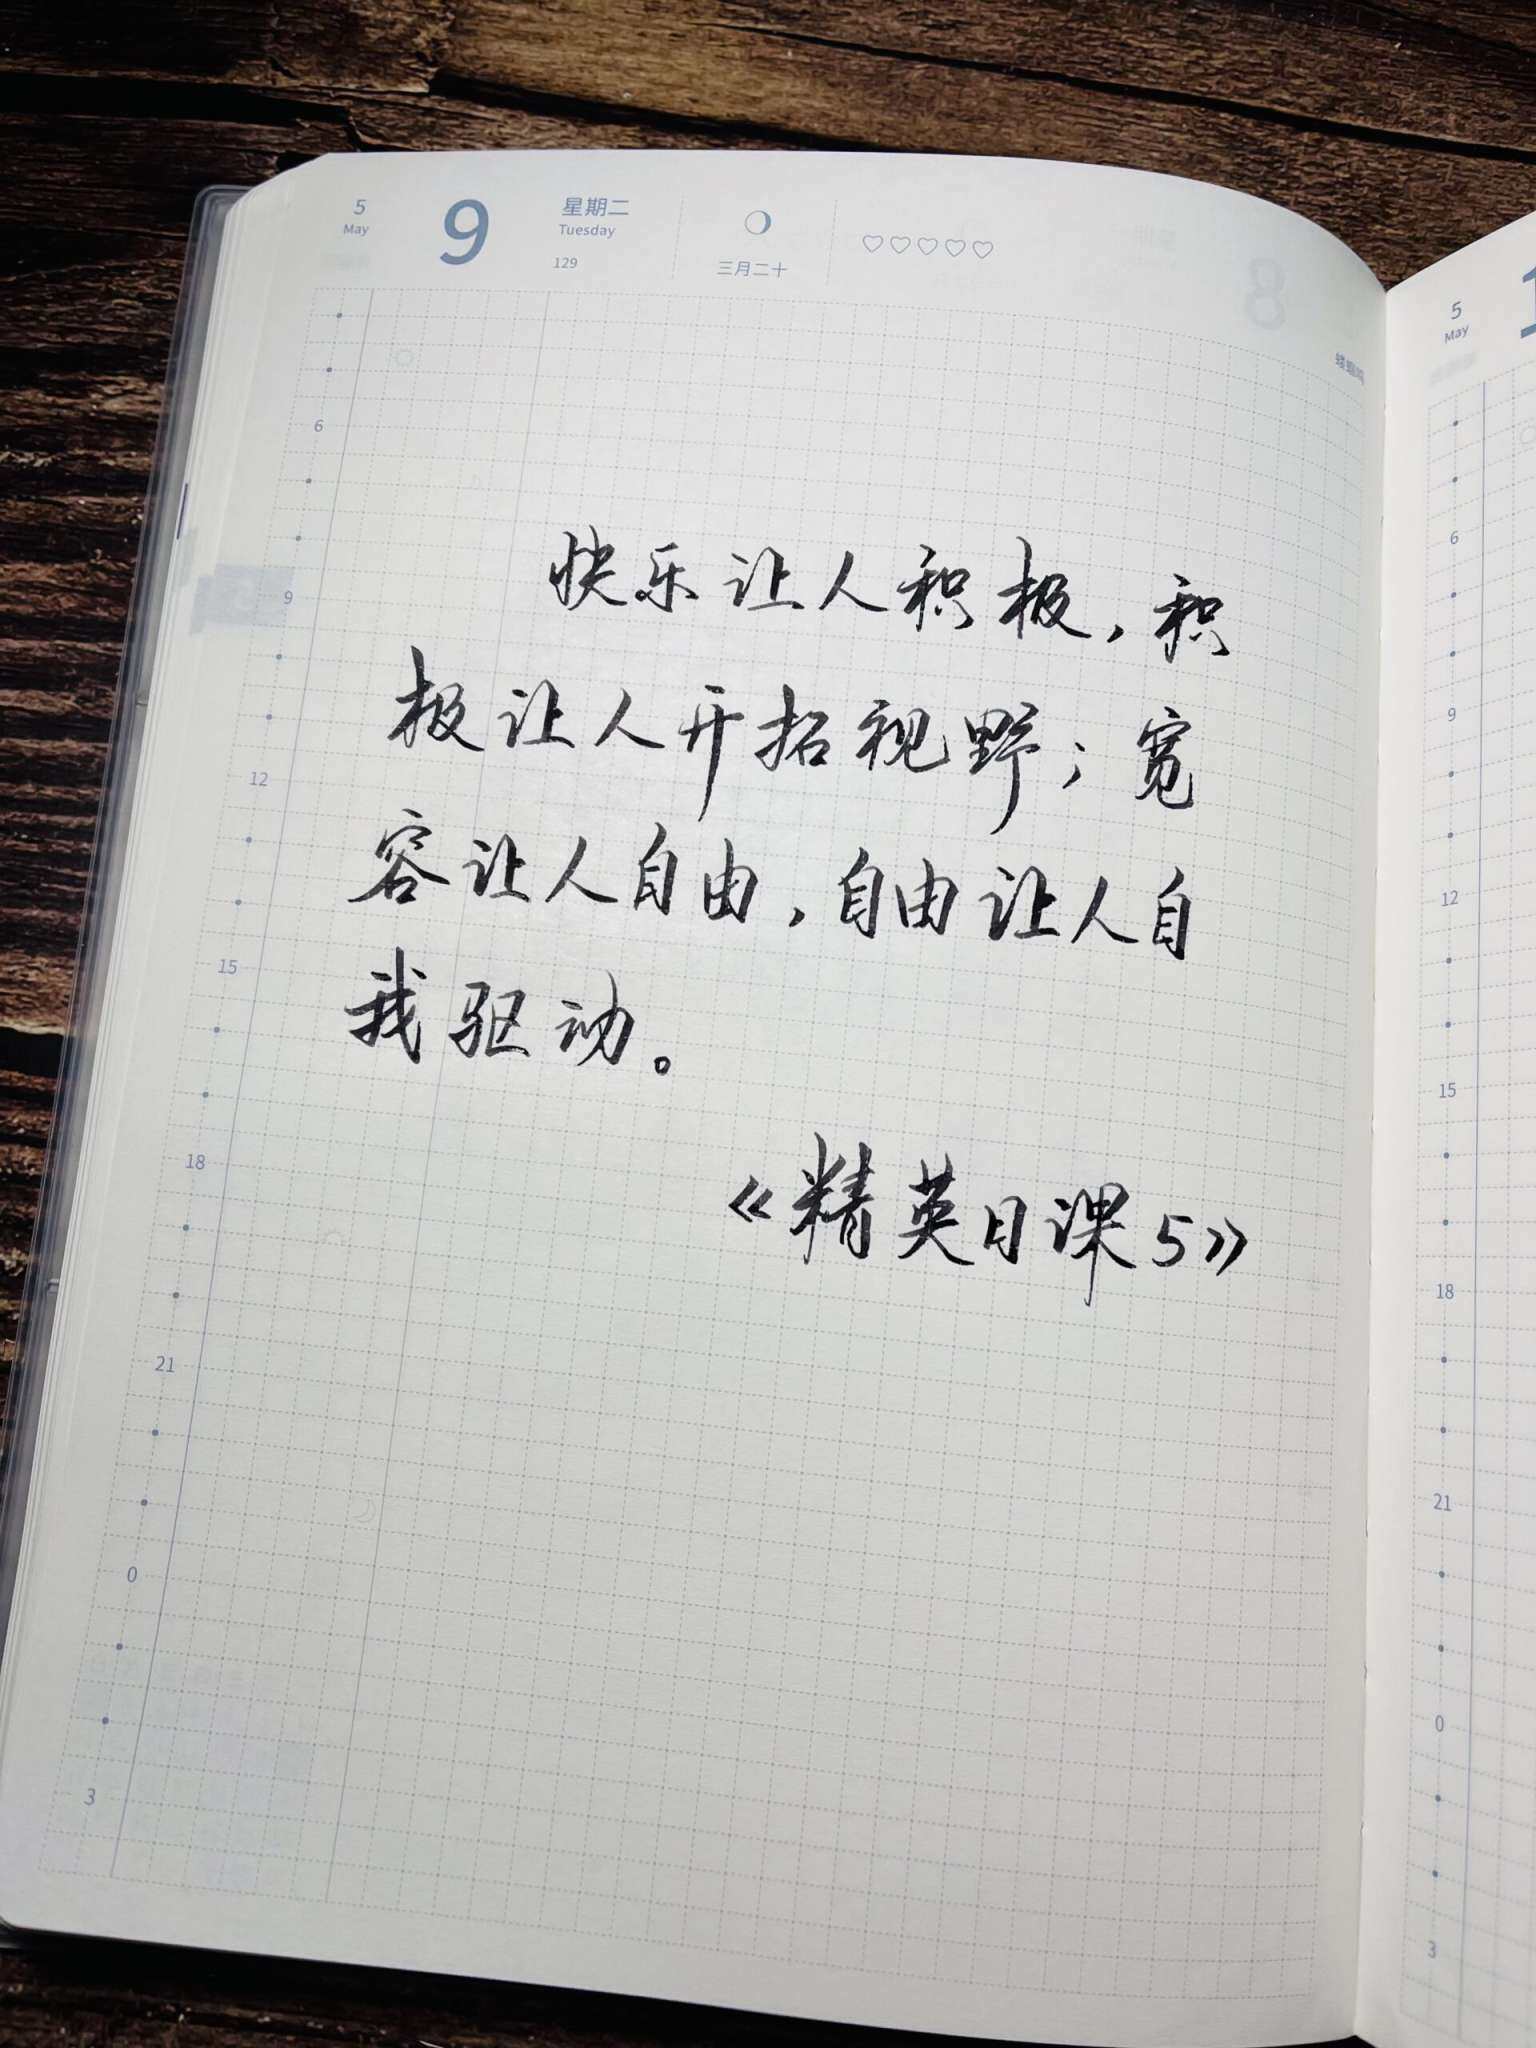 5 9 星期二
May Tuesday
129 三月二十
6
9
12
15
18
21
0
3
快乐让人积极，积
极让人开拓视野；宽
容让人自由，自由让人自
我驱动。
《精英日课5》
5
May
6
9
12
15
18
21
0
3